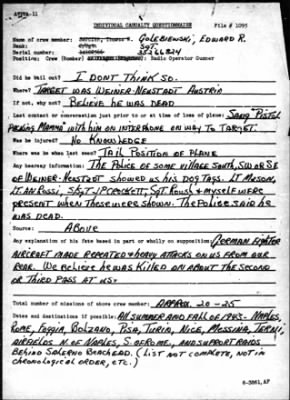 INDIVIDUAL CASUALTY QUESTIONNAIRE
File # 1095
Name of crew member: GOLEBIEWSKI, EDWARD R.
Rank: SGT.
Serial number: 35266824
Position: Crew (Bomber) Radio Operator Gunner
Did he bail out? I DONT THINK SO.
Where? TARGET WAS WEINER-NEUSTADT AUSTRIA
If not, why not? BELIEVE HE WAS DEAD
Last contact or conversation just prior to or at time of loss of plane: SANG "PISTOL
PACKING MAMMA" WITH HIM ON INTERPHONE ON WAY TO TARGET.
Was he injured? NO KNOWLEDGE
Where was he when last seen? TAIL POSITION OF PLANE
Any hearsay information: THE POLICE OF SOME VILLAGE SOUTH, SW OR SE
OF WEINER-NEUSTADT SHOWED US HIS DOG TAGS. LT. MASON,
LT. IAN ROSSI, S/SGT. J P CROCKETT, SGT. ROUSH & MYSELF WERE
PRESENT WHEN THESE WERE SHOWN. THE POLICE SAID HE
WAS DEAD.
Source: ABOVE
Any explanation of his fate based in part or wholly on supposition: GERMAN FIGHTER
AIRCRAFT MADE REPEATED & HEAVY ATTACKS ON US FROM OUR
REAR. WE BELIEVE HE WAS KILLED ON ABOUT THE SECOND
OR THIRD PASS AT US.
Total number of missions of above crew member: APPROX. 20-25
Dates and destinations if possible: ALL SUMMER AND FALL OF 1943 - NAPLES,
ROME, FOGGIA, BOLZANO, PISA, TURIN, NICE, MESSINA, TERNI,
AIRFIELDS N. OF NAPLES, S. OF ROME, AND SUPPORT RAIDS
BEHIND SALERNO BEACHEAD. (LIST NOT COMPLETE, NOT IN
CHRONOLOGICAL ORDER, ETC.)
6-3861,AF